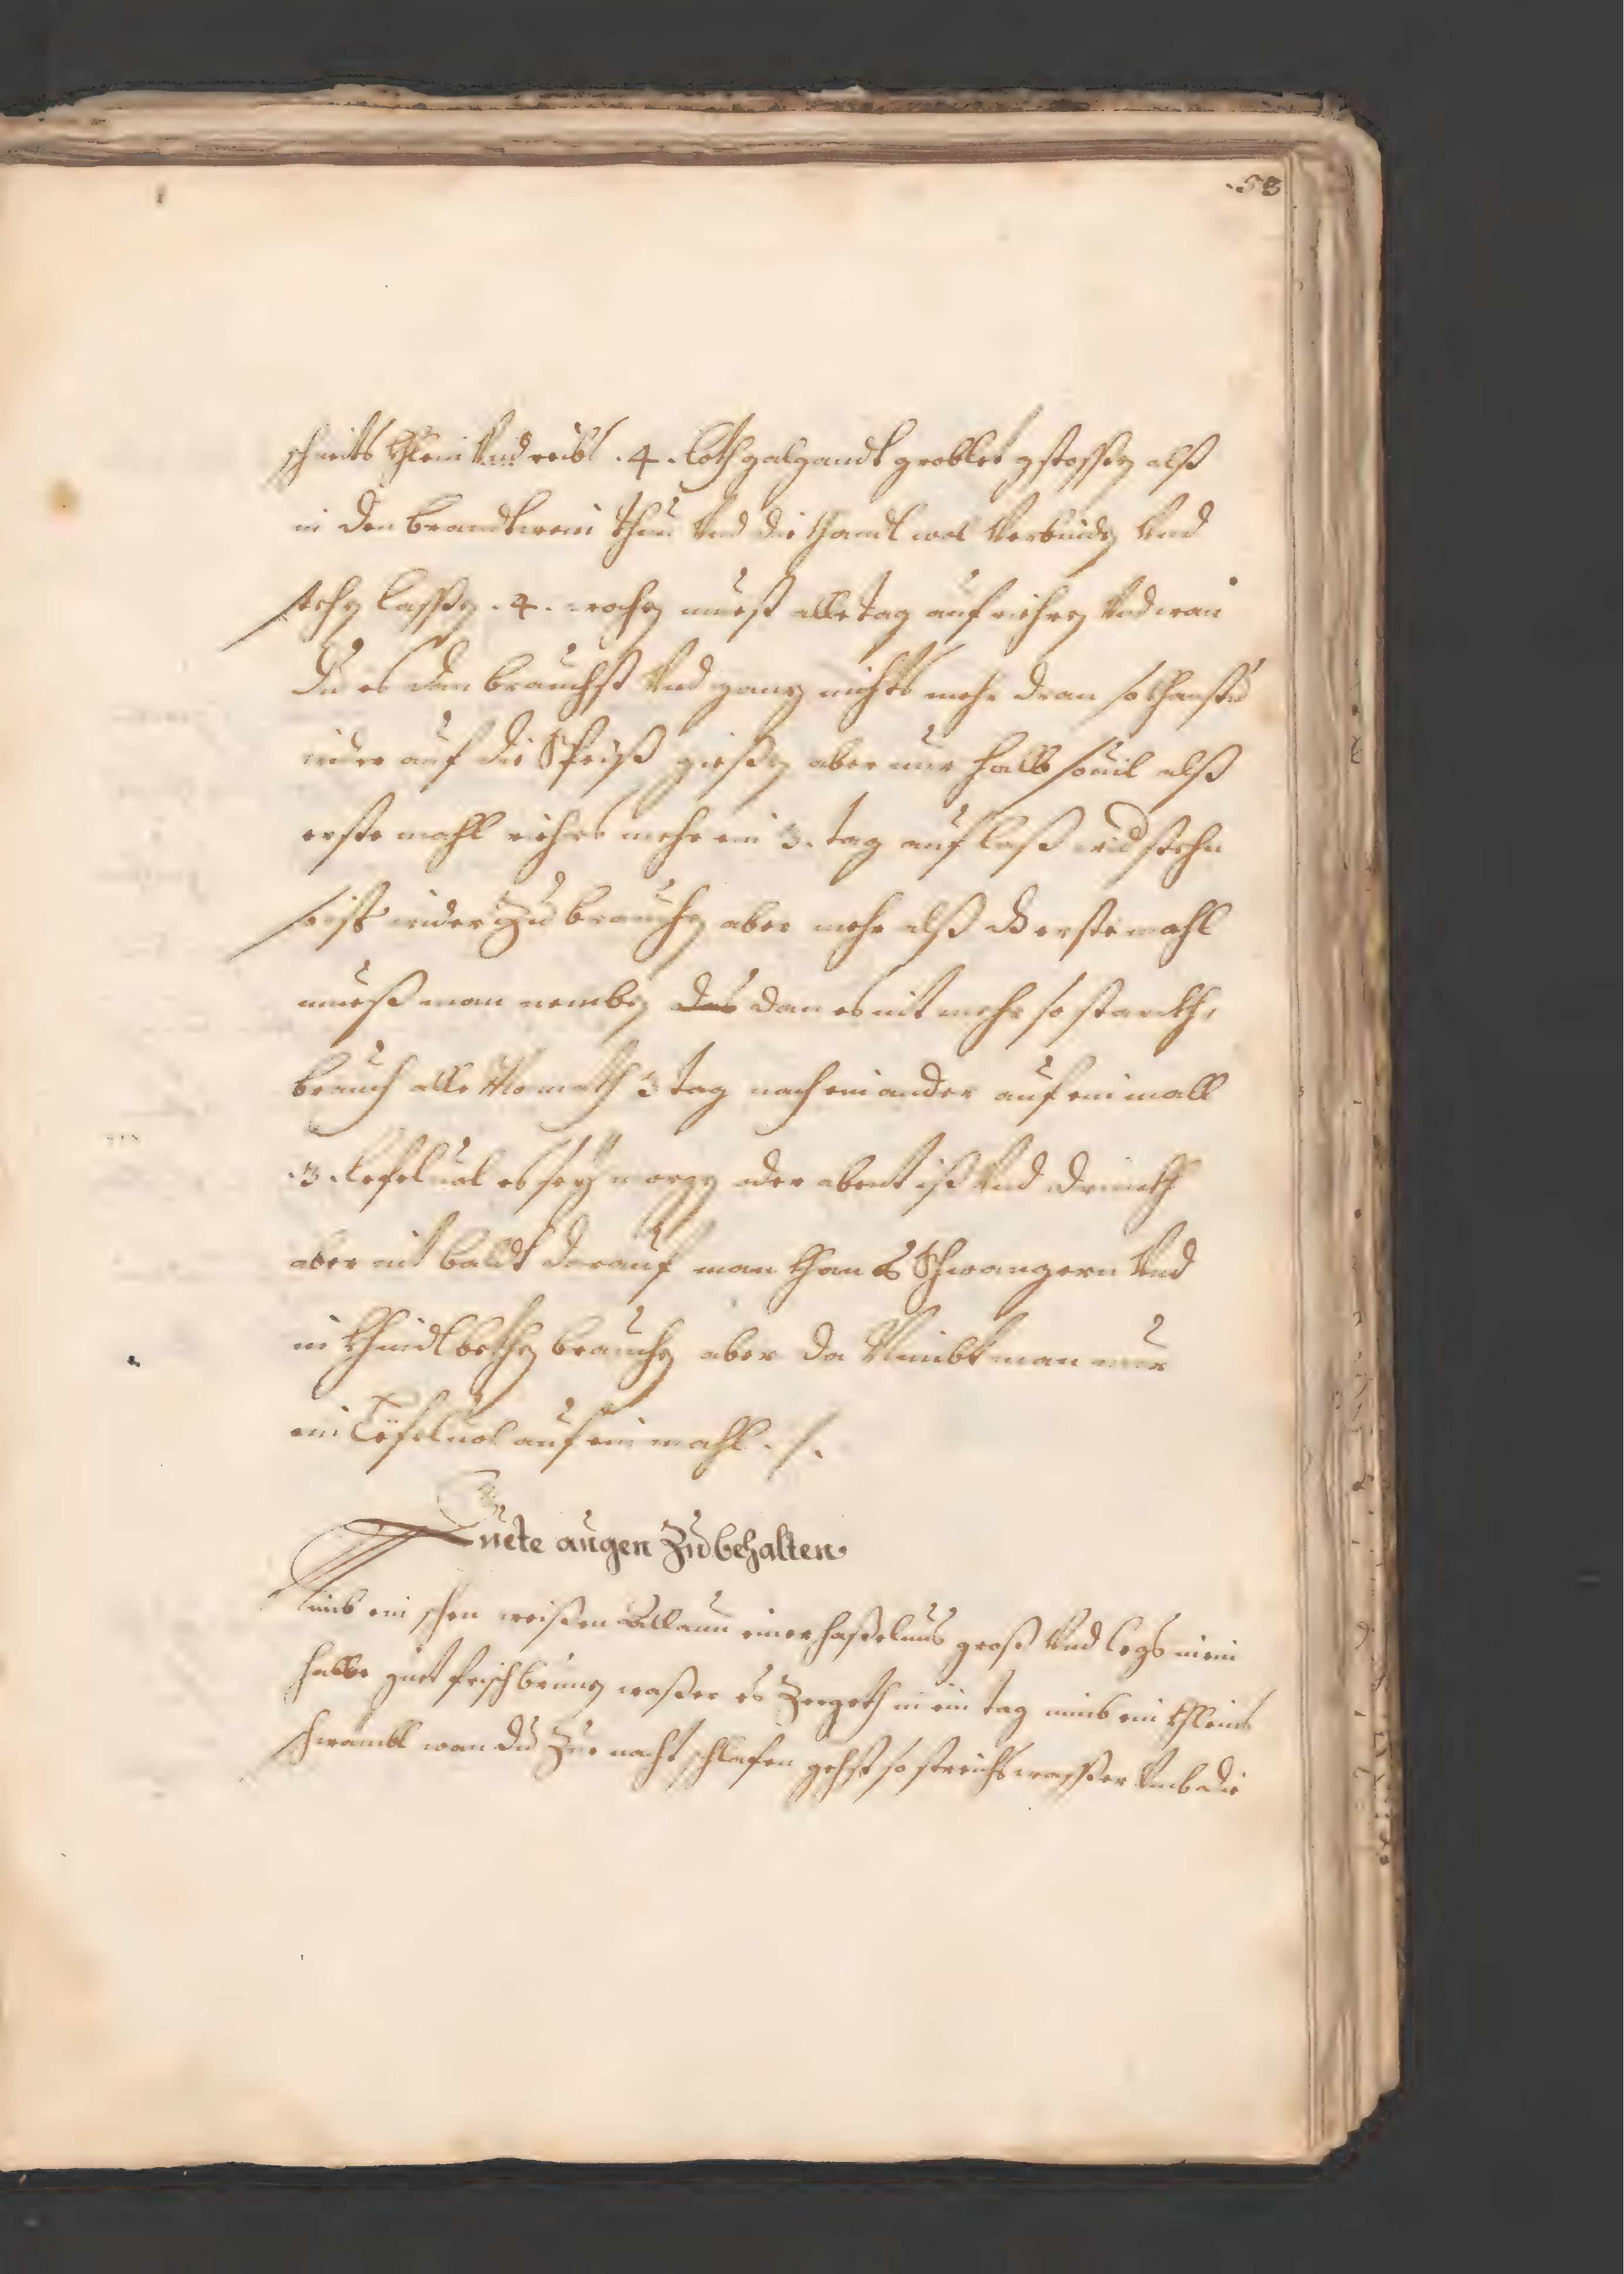 .58
schneits khlein Vnd reibs .4. loth galgandt groblet gstossen alß
in den brandtwein thun Vnd die khandl wol Verbinden Vnd
stehen lassen .4. wochen muest alle tag auf riehren Vnd wan
Du es dan brauchst Vnd ganz nichts mehr dran so khanstu
wider auf die Speiß giessen aber nur halb souil alß
erste mahl riehrs mehr ein 3. tag auf laß stehn
so ists wider Zu brauchen aber mehr alß erste mahl
mueß man nemben dan es nit mehr so starckh,
brauch alle Monath 3 tag nach einander auf ein mall
.3. Lefel uol es sey morgen oder abent iß Vnd drinckh
aber nit baldt darauf man khan es Schwangern Vnd
in khindlbethen brauchen aber da Nimbt man nur
ein Lefel uol auf ein mahl ./.
Guete augen Zu behalten
Nimb ein schen weißen Allaun einer haßelnus groß Vnd legs in ein
halbe guet frisch brunen waßer es Zergeth in ein tag nimb ein khleins
schwambl wan du Zur nacht schlafen gehst so streichs wasser Vmb die